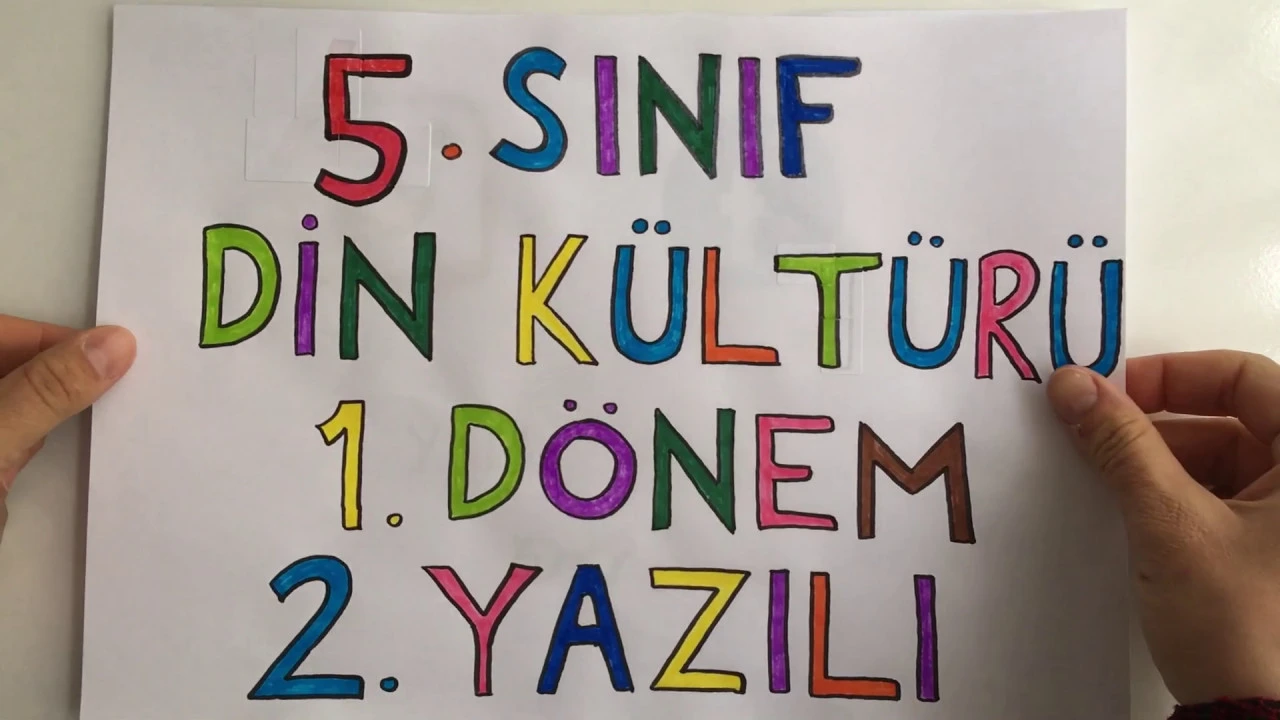 5. SINIF
DİN KÜLTÜRÜ
1. DÖNEM
2. YAZILI